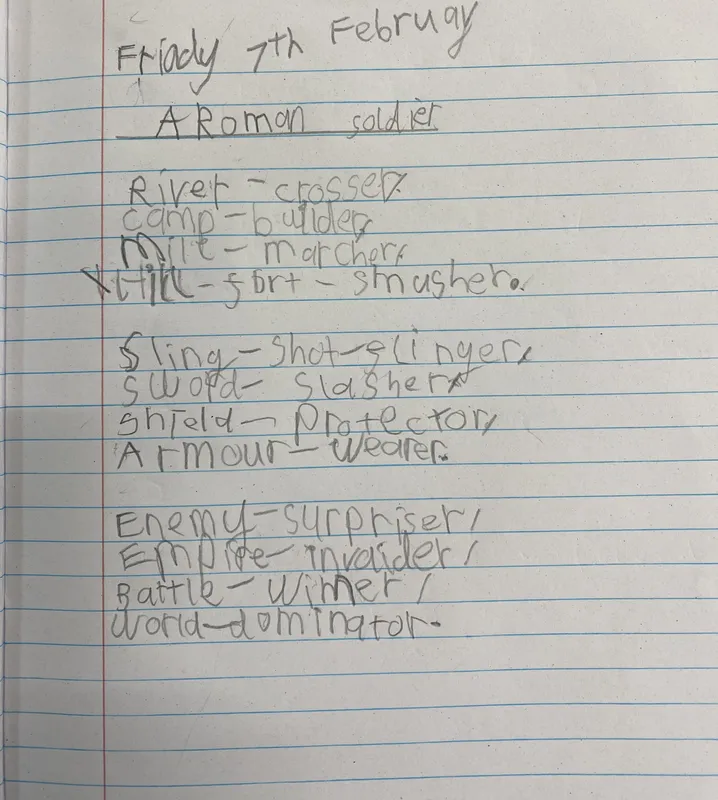 Friady 7th Februay
A Roman soldier
River-crosser,
camp-builder,
Mile-marcher,
Hill-fort-smasher.
Sling-shot-slinger,
Sword-slasher,
Shield-protector,
Armour-wearer.
Enemy-surpriser,
Empire-invaider,
Battle-winner,
World-dominator.